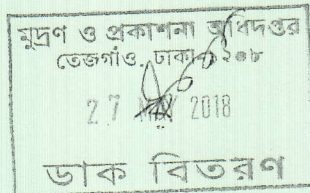 মুদ্রণ ও প্রকাশনা অধিদপ্তর
তেজগাঁও, ঢাকা-১২০৮
27 MAY 2018
ডাক বিতরণ